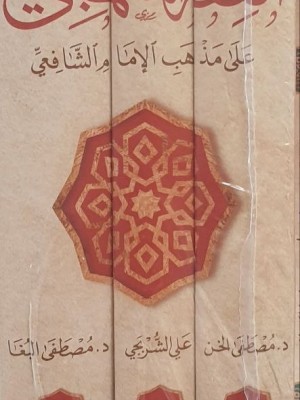 الفقه المنهجي
عَلَى مَذْهَبِ الإِمَامِ الشَّافِعِيِّ
د. مُصْطَفَى الخن عَلِي الشَّرْبَجِي د. مُصْطَفَى البُغَا